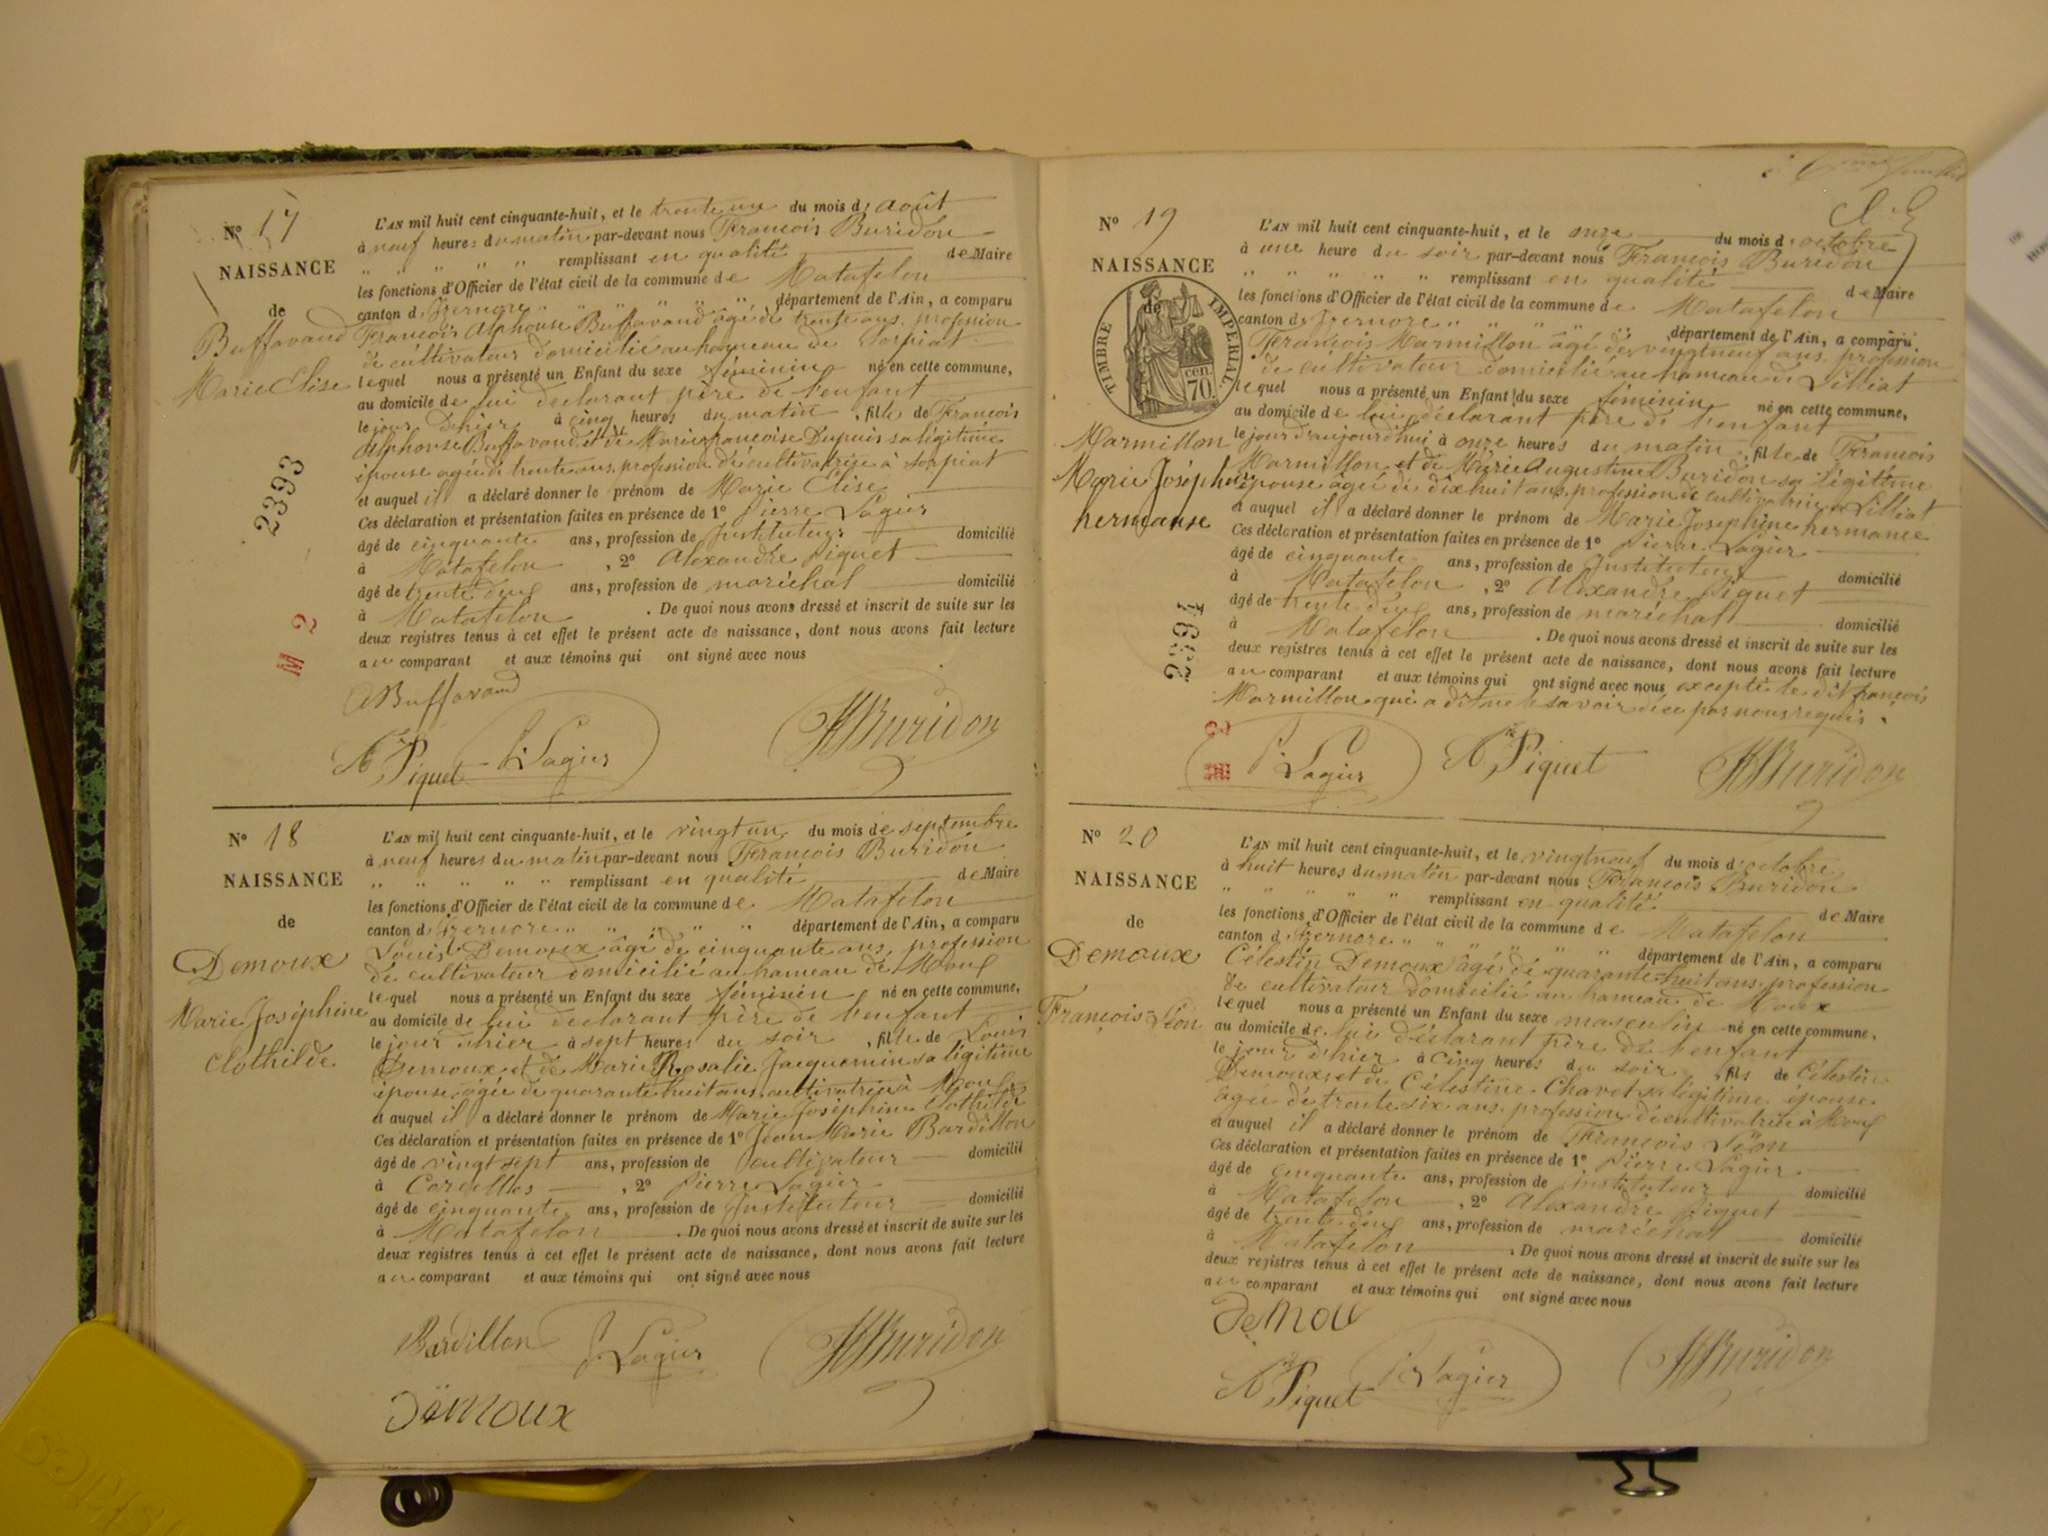 N° 17
NAISSANCE
de
Buffavand
Marie Elise
L'AN mil huit cent cinquante-huit, et le trente un du mois d'août
à neuf heures du matin par-devant nous François Buridon
" " " " " remplissant en qualité de Maire
les fonctions d'Officier de l'état civil de la commune de Matafelon
canton d'Izernore " " " " " " département de l'Ain, a comparu
François Alphonse Buffavand âgé de trente ans, profession
de cultivateur domicilié au hameau de Sorpiat
lequel nous a présenté un Enfant du sexe féminin né en cette commune,
au domicile de lui déclarant père de l'enfant
le jour d'hier à cinq heures du matin, fille de François
Alphonse Buffavand et de Marie françoise Dupuis sa légitime
épouse agée de trente ans, profession de cultivatrice à Sorpiat
et auquel il a déclaré donner le prénom de Marie Elise
Ces déclaration et présentation faites en présence de 1° Pierre Lagier
âgé de cinquante ans, profession de Instituteur domicilié
à Matafelon, 2° Alexandre Piquet
âgé de trente deux ans, profession de maréchal domicilié
à Matafelon. De quoi nous avons dressé et inscrit de suite sur les
deux registres tenus à cet effet le présent acte de naissance, dont nous avons fait lecture
au comparant et aux témoins qui ont signé avec nous
ABuffavand
A Piquet P Lagier Buridon
2393
M 2
N° 18
NAISSANCE
de
Demoux
Marie Joséphine
Clothilde
L'AN mil huit cent cinquante-huit, et le vingt un du mois de septembre
à neuf heures du matin par-devant nous François Buridon
" " " " " remplissant en qualité de Maire
les fonctions d'Officier de l'état civil de la commune de Matafelon
canton d'Izernore " " " " " département de l'Ain, a comparu
Louis Demoux âgé de cinquante ans, profession
de cultivateur domicilié au hameau de Moux
lequel nous a présenté un Enfant du sexe féminin né en cette commune,
au domicile de lui déclarant père de l'enfant
le jour d'hier à sept heures du soir, fille de Louis
Demoux et de Marie Rosalie Jacquemin sa légitime
épouse âgée de quarante huit ans cultivatrice à Moux
et auquel il a déclaré donner le prénom de Marie Joséphine Clothilde
Ces déclaration et présentation faites en présence de 1° Jean Marie Bardillon
âgé de vingt sept ans, profession de cultivateur domicilié
à Corcelles, 2° Pierre Lagier
âgé de cinquante ans, profession de Instituteur domicilié
à Matafelon. De quoi nous avons dressé et inscrit de suite sur les
deux registres tenus à cet effet le présent acte de naissance, dont nous avons fait lecture
au comparant et aux témoins qui ont signé avec nous
Bardillon P Lagier Buridon
Demoux
N° 19
NAISSANCE
de
TIMBRE IMPERIAL
70 cen
Marmillon
Marie Joséphine
hermanse
L'AN mil huit cent cinquante-huit, et le onze du mois d'octobre
à une heure du soir par-devant nous François Buridon
" " " " " remplissant en qualité de Maire
les fonctions d'Officier de l'état civil de la commune de Matafelon
canton d'Izernore " " " " département de l'Ain, a comparu
François Marmillon âgé de vingt neuf ans, profession
de cultivateur domicilié au hameau de Lilliat
lequel nous a présenté un Enfant du sexe féminin né en cette commune,
au domicile de lui déclarant père de l'enfant
le jour d'aujourd'hui à onze heures du matin, fille de François
Marmillon et de Marie Augustine Buridon sa légitime
épouse âgée de dix huit ans, profession de cultivatrice à Lilliat
et auquel il a déclaré donner le prénom de Marie Josephine hermance
Ces déclaration et présentation faites en présence de 1° Pierre Lagier
âgé de cinquante ans, profession de Instituteur domicilié
à Matafelon, 2° Alexandre Piquet
âgé de trente deux ans, profession de maréchal domicilié
à Matafelon. De quoi nous avons dressé et inscrit de suite sur les
deux registres tenus à cet effet le présent acte de naissance, dont nous avons fait lecture
au comparant et aux témoins qui ont signé avec nous excepté le dit françois
Marmillon qui a dit ne le savoir de ce par nous requis.
P Lagier A Piquet Buridon
2394
M 2
N° 20
NAISSANCE
de
Demoux
François Léon
L'AN mil huit cent cinquante-huit, et le vingt neuf du mois d'octobre
à huit heures du matin par-devant nous François Buridon
" " " " " remplissant en qualité de Maire
les fonctions d'Officier de l'état civil de la commune de Matafelon
canton d'Izernore " " " " " " département de l'Ain, a comparu
Célestin Demoux âgé de quarante huit ans, profession
de cultivateur domicilié au hameau de Moux
lequel nous a présenté un Enfant du sexe masculin né en cette commune,
au domicile de lui déclarant père de l'enfant
le jour d'hier à cinq heures du soir, fils de Célestin
Demoux et de Célestine Chavet sa légitime épouse
agée de trente six ans, profession de cultivatrice à Moux
et auquel il a déclaré donner le prénom de François Léon
Ces déclaration et présentation faites en présence de 1° Pierre Lagier
âgé de cinquante ans, profession de Instituteur domicilié
à Matafelon, 2° Alexandre Piquet
âgé de trente deux ans, profession de maréchal domicilié
à Matafelon. De quoi nous avons dressé et inscrit de suite sur les
deux registres tenus à cet effet le présent acte de naissance, dont nous avons fait lecture
au comparant et aux témoins qui ont signé avec nous
Demou
A Piquet P Lagier Buridon